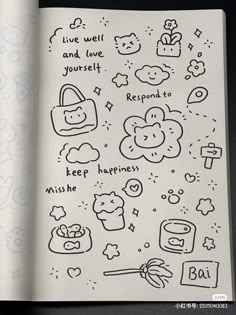 Live well
and love
yourself.
Respond to
keep happiness
misshe
Bai
小红书号:2201040083